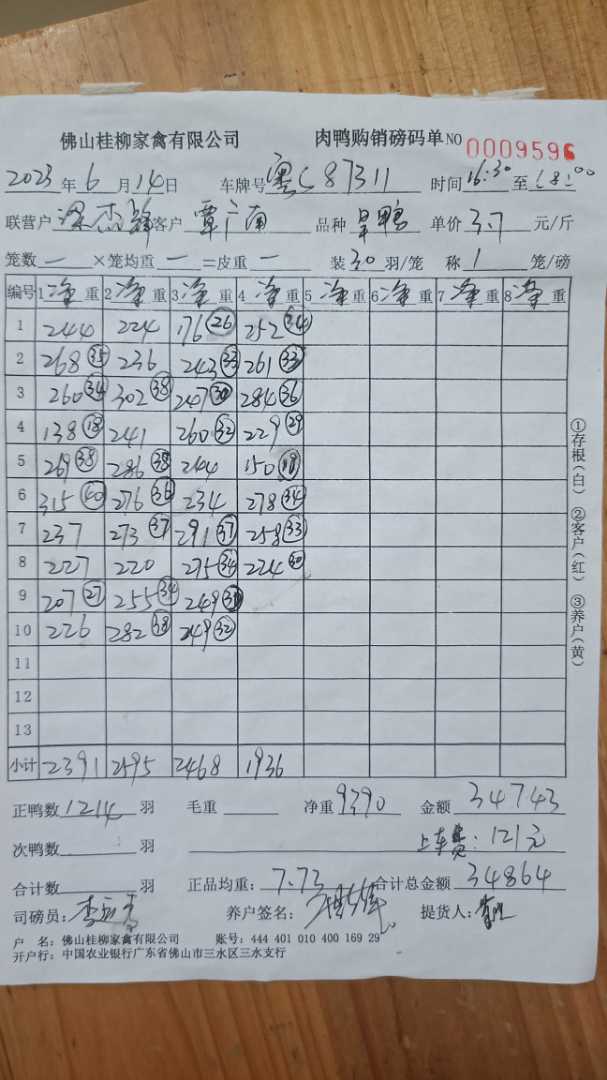 佛山桂柳家禽有限公司 肉鸭购销磅码单 NO 0009596
2023年6月14日 车牌号 粤C87311 时间 16:30 至 18:00
联营户 客户 覃广南 品种 旱鸭 单价 3.7 元/斤
笼数 一 ×笼均重 一 =皮重 一 装 30 羽/笼 称 1 笼/磅
编号 1 净重 2 净重 3 净重 4 净重 5 净重 6 净重 7 净重 8 净重
1 244 224 176 (26) 252 (34)
2 268 (35) 236 243 (33) 261 (33)
3 260 (34) 302 (38) 247 (30) 284 (36)
4 138 (18) 241 260 (32) 229 (29)
5 269 (38) 286 (38) 244 150 (19)
6 315 (40) 276 (36) 234 278 (34)
7 237 273 (37) 291 (37) 258 (33)
8 227 220 275 (34) 224 (30)
9 207 (27) 255 (34) 249 (31)
10 226 282 (38) 249 (32)
11
12
13
小计 2391 2595 2468 1936
①存根(白) ②客户(红) ③养户(黄)
正鸭数 1214 羽 毛重 净重 9390 金额 34743
次鸭数 羽 上车费: 121元
合计数 羽 正品均重: 7.73 合计总金额 34864
司磅员: 养户签名: 提货人:
户 名: 佛山桂柳家禽有限公司 账号: 444 401 010 400 169 29
开户行: 中国农业银行广东省佛山市三水区三水支行